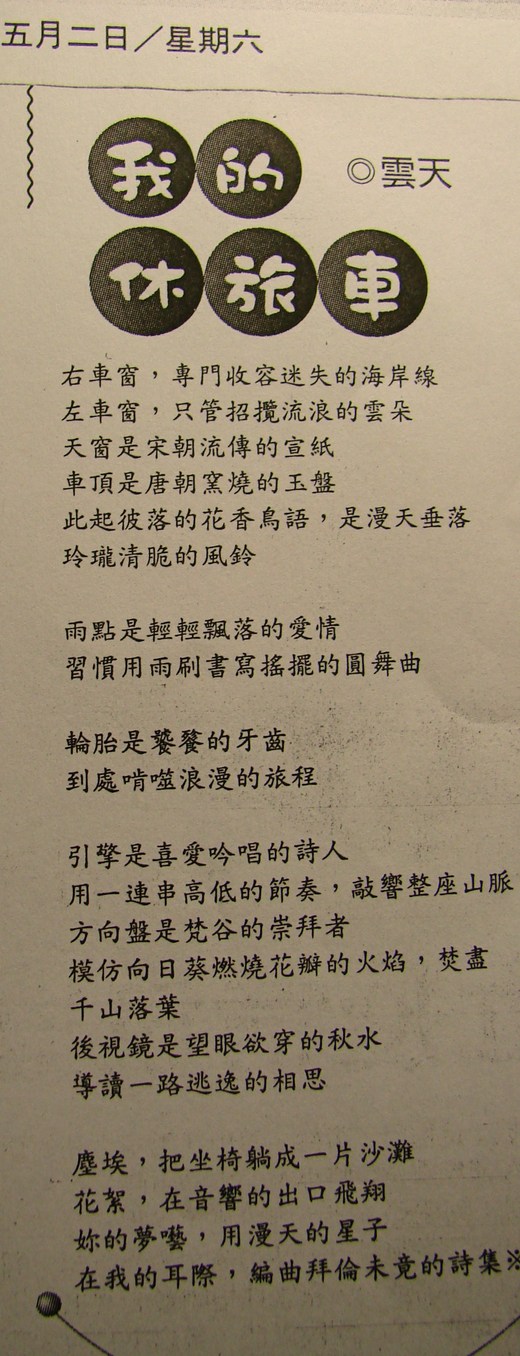 五月二日／星期六
我的
◎雲天
休旅車
右車窗，專門收容迷失的海岸線
左車窗，只管招攬流浪的雲朵
天窗是宋朝流傳的宣紙
車頂是唐朝窯燒的玉盤
此起彼落的花香鳥語，是漫天垂落
玲瓏清脆的風鈴
雨點是輕輕飄落的愛情
習慣用雨刷書寫搖擺的圓舞曲
輪胎是饕餮的牙齒
到處啃噬浪漫的旅程
引擎是喜愛吟唱的詩人
用一連串高低的節奏，敲響整座山脈
方向盤是梵谷的崇拜者
模仿向日葵燃燒花瓣的火焰，焚盡
千山落葉
後視鏡是望眼欲穿的秋水
導讀一路逃逸的相思
塵埃，把坐椅躺成一片沙灘
花絮，在音響的出口飛翔
妳的夢囈，用漫天的星子
在我的耳際，編曲拜倫未竟的詩集※